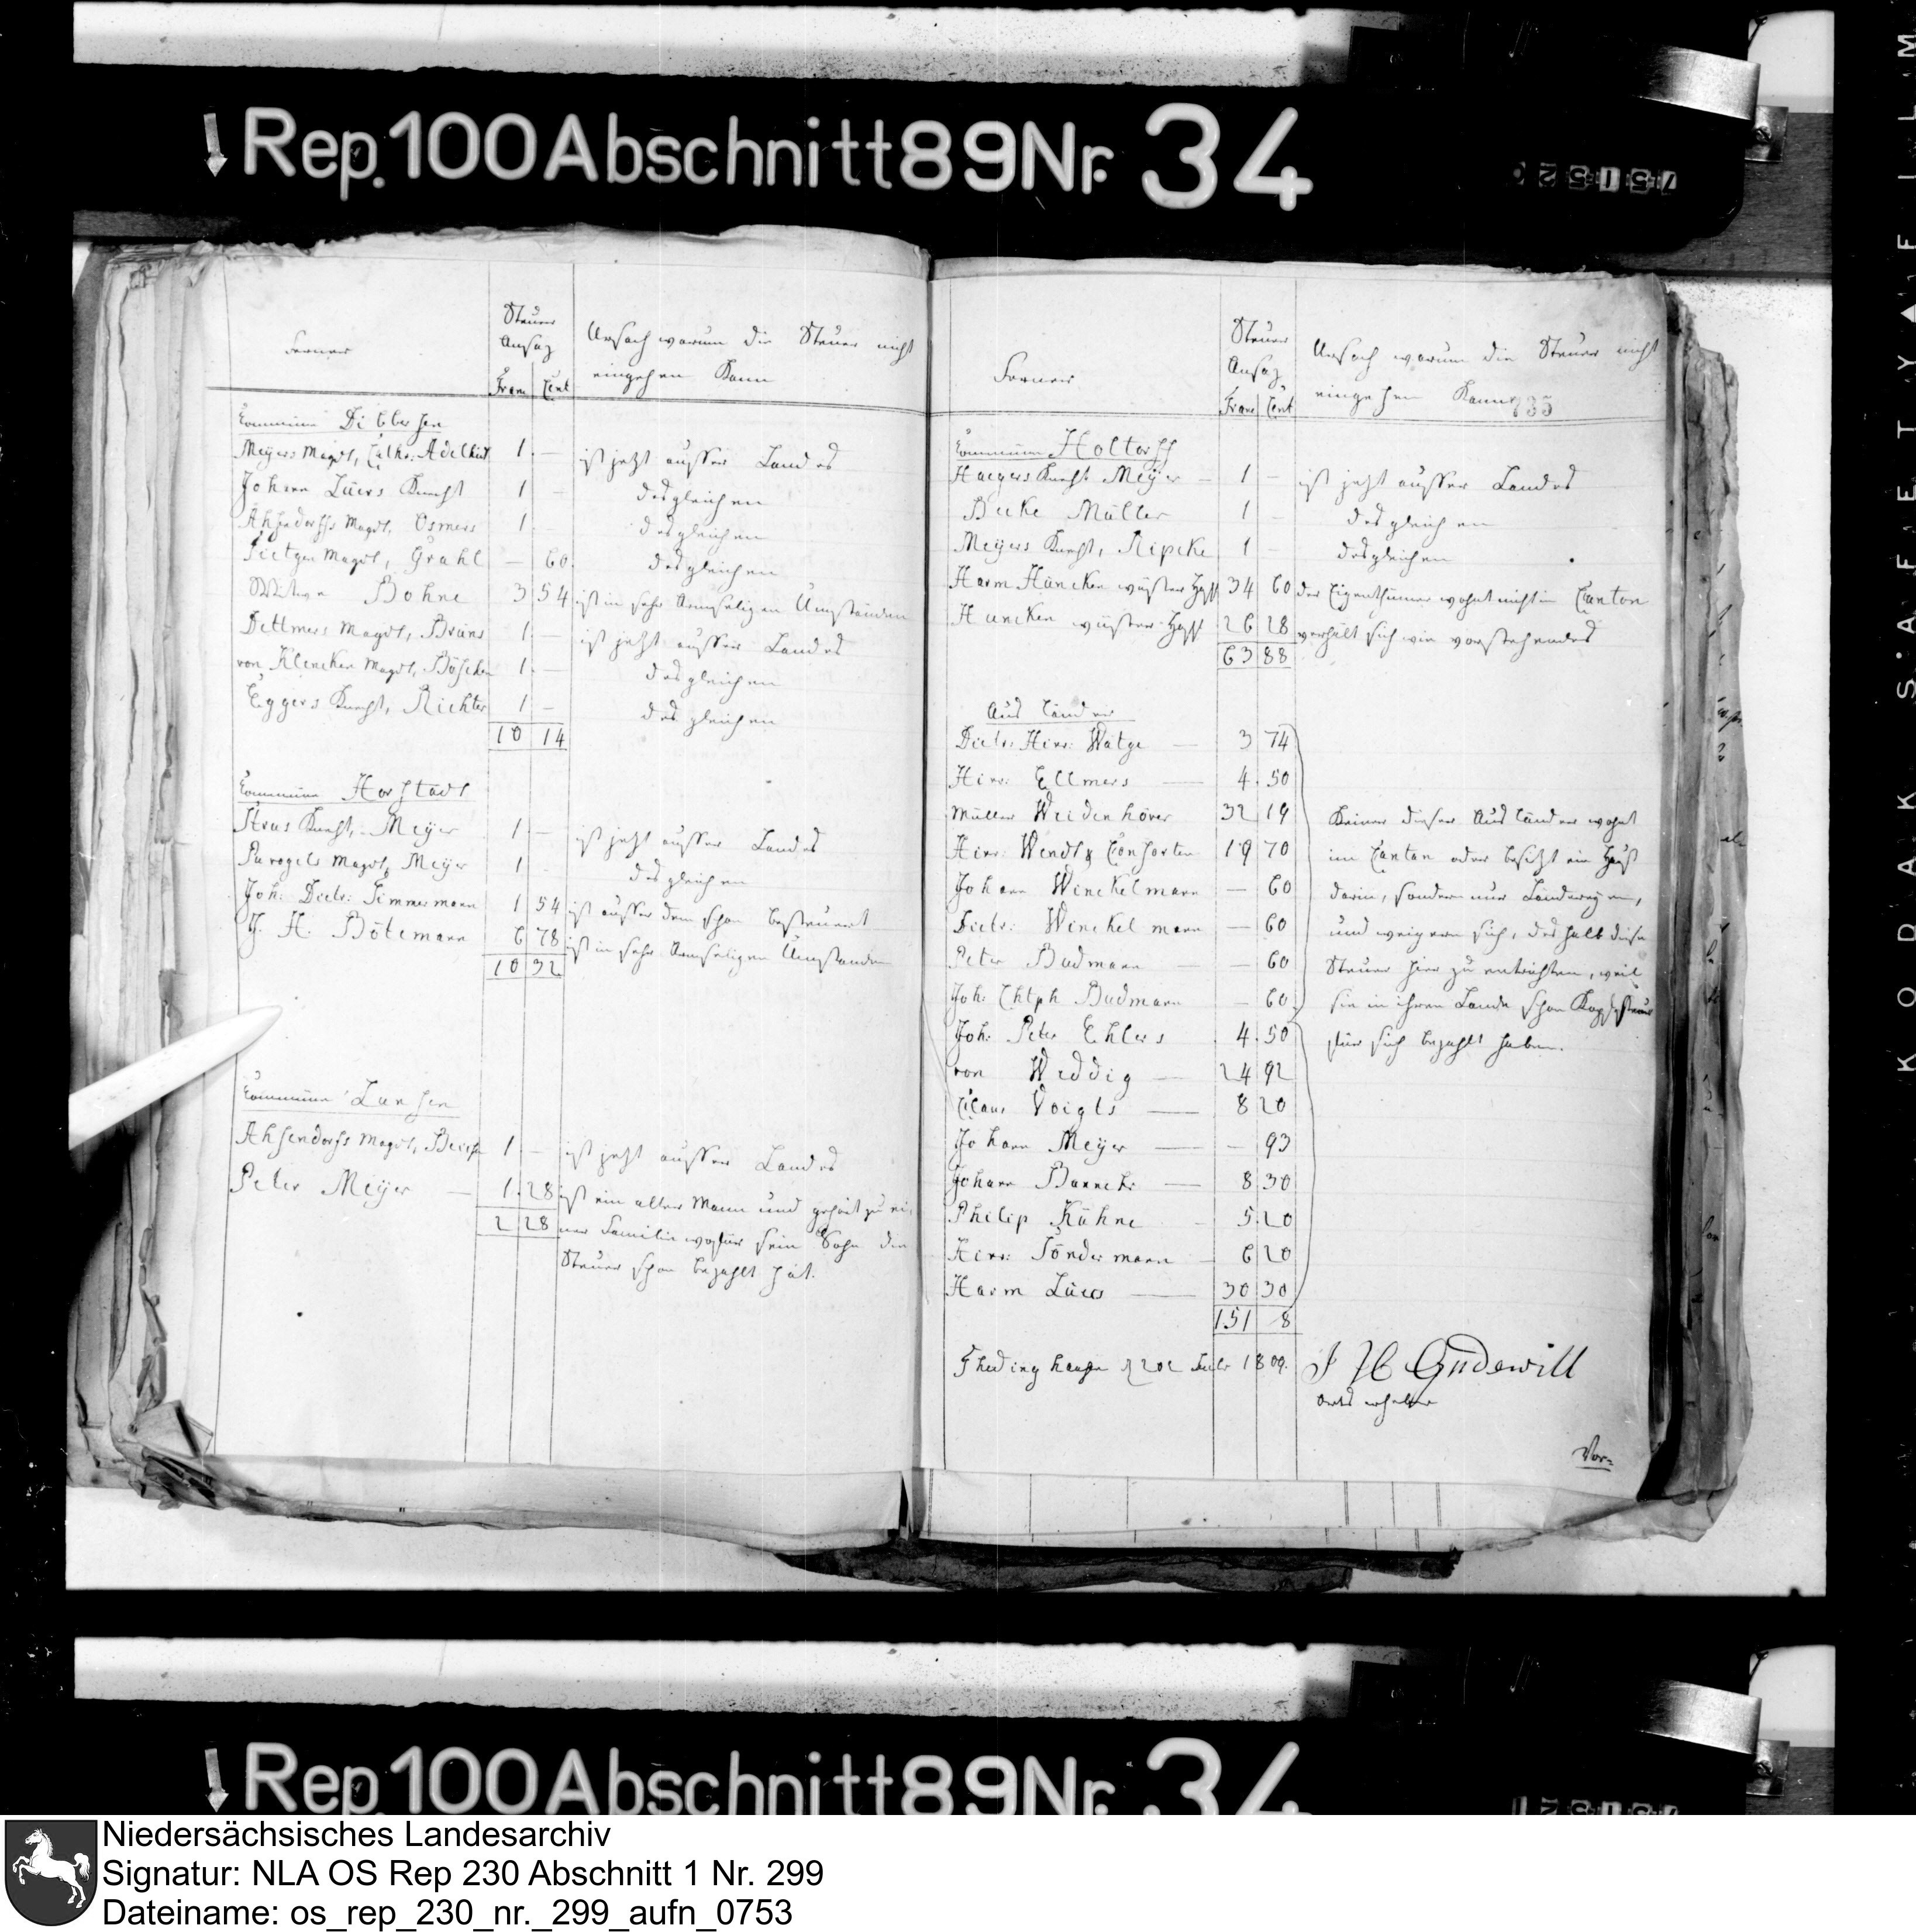 Rep. 100 Abschnitt 89 Nr. 34
Ferner
Steuer
Ansaz
Franc Cent
Ursach warum die Steuer nicht
eingehen kann
Commune Dibbersen
Meyers Magdt, Cathr: Adelheit 1 — ist jetzt ausser Landes
Johann Lüers Knecht 1 — desgleichen
Ahsendorffs Magdt, Osmers 1 — desgleichen
Magdt, Grahl — 60 desgleichen
Witwe Bohne 3 54 ist in sehr armseligen Umständen
Dettmers Magdt, Bruns 1 — ist jetzt ausser Landes
von Klencken Magdt, 1 — desgleichen
Eggers Knecht, Richter 1 — desgleichen
10 14
Commune Horstädt
Knecht, Meyer 1 — ist jetzt ausser Landes
Magdt, Meyer 1 — desgleichen
Joh: Dietr: Timmermann 1 54 ist ausser dem schon besteuert
J. H. Bötemann 6 78 ist in sehr armseligen Umständen
10 32
Commune Lunsen
Ahsendorffs Magdt, 1 — ist jetzt ausser Landes
Peter Meyer — 1 28 ist ein alter Mann und gehört zu ei-
2 28 ner Familie wofür sein Sohn die
Steuer schon bezahlt hat.
Ferner
Steuer
Ansaz
Franc Cent
Ursach warum die Steuer nicht
eingehen kann
735
Commune Holtorff
Haegers Knecht Meyer — 1 — ist jetzt ausser Landes
Beke Müller 1 — desgleichen
Meyers Knecht, Ripcke 1 — desgleichen
Harm Huncken wüster Hoff 34 60 der Eigenthümer wohnt nicht im Canton
Huncken wüster Hoff 26 28 verhält sich wie vorstehendes
63 88
Ausländer
Dietr: Hinr: Wätge — 3 74
Hinr: Ellmers — 4 50
Müller Weidenhöver 32 19
Hinr: Wendt & Consorten 19 70
Johann Winckelmann — 60
Dietr: Winckelmann — 60
Peter Budmann — 60
Joh: Chtph Budmann — 60
Joh: Peter Ehlers 4 50
von Weddig — 24 92
Claus Voigts — 8 20
Johann Meyer — — 93
Johann — 8 30
Philip Kühne 5 20
Hinr: Töndermann 6 20
Harm Lüers — 30 30
151 8
Keiner dieser Ausländer wohnt
im Canton oder besitzt ein Hauss
darin, sondern nur Ländereyen,
und weigern sich, deshalb diese
Steuer hier zu entrichten, weil
sie in ihren Lande schon Kopfsteuer
für sich bezahlt haben.
Thedinghausen 1809.
J H Gudewill
Vor=
KODAK SAFETY FILM
Rep. 100 Abschnitt 89 Nr. 34
Niedersächsisches Landesarchiv
Signatur: NLA OS Rep 230 Abschnitt 1 Nr. 299
Dateiname: os_rep_230_nr._299_aufn_0753